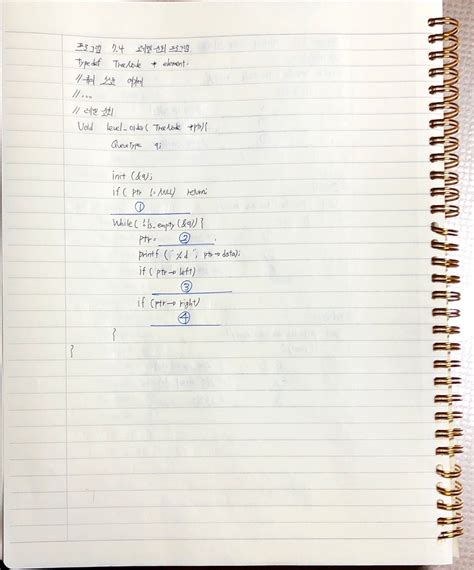 프로그램 7.4 레벨 순회 프로그램
Typedef TreeNode * element;
//
//...
// 레벨 순회
Void level_order( TreeNode *ptr){
QueueType q;
init (&q);
if ( ptr != NULL) return;
①
While( !is_empty (&q)) {
ptr= ② .
printf ( " %d ", ptr→data);
if ( ptr→left)
③
if (ptr→right)
④
}
}